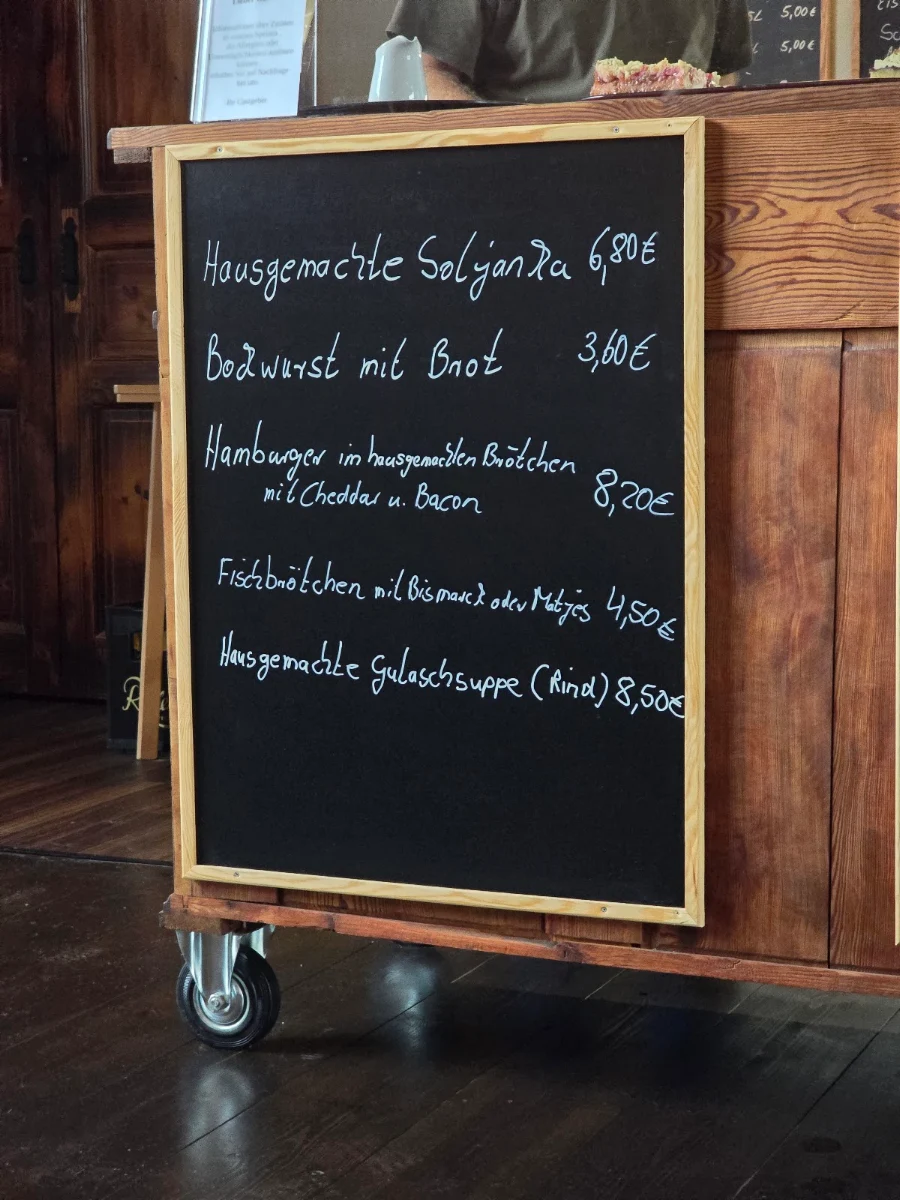 5,00€
5,00€
Hausgemachte Soljanka 6,80€
Bockwurst mit Brot 3,60€
Hamburger im hausgemachten Brötchen
mit Cheddar u. Bacon 8,20€
Fischbrötchen mit Bismarck oder Matjes 4,50€
Hausgemachte Gulaschsuppe (Rind) 8,50€